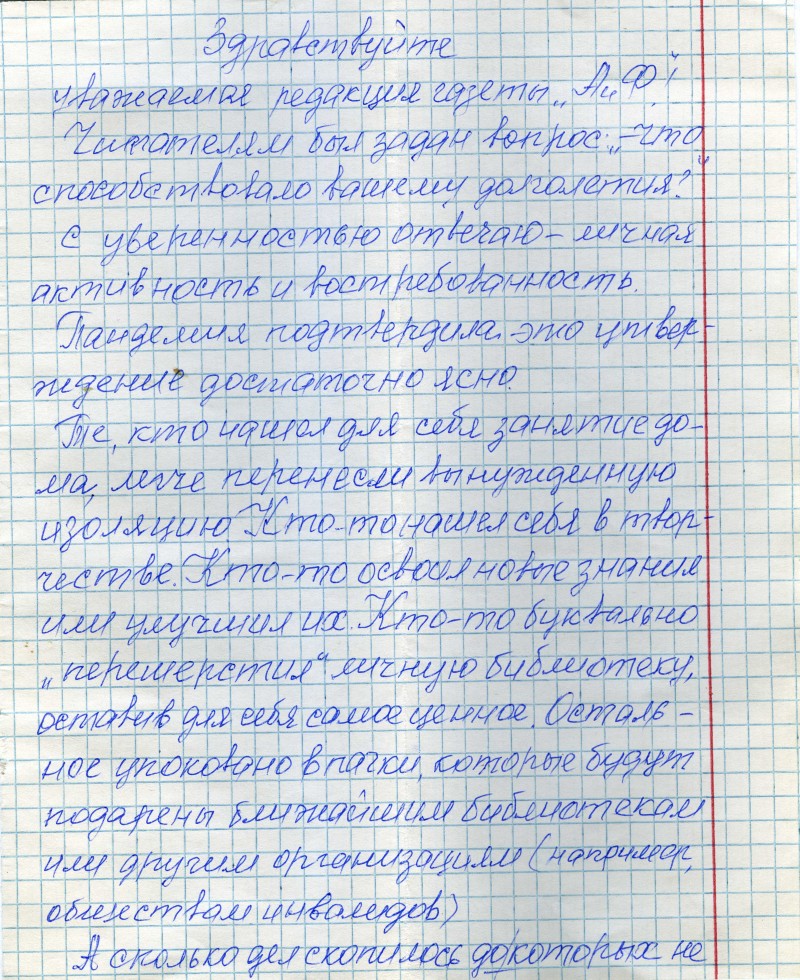 Здравствуйте
уважаемая редакция газеты „АиФ"!
Читателям был задан вопрос: „-что
способствовало вашему долголетия?"
С уверенностью отвечаю – личная
активность и востребованность.
Пандемия подтвердила это утвер-
ждение достаточно ясно.
Те, кто нашол для себя занятие до-
ма, легче перенесли вынужденную
изоляцию. Кто-то нашел себя в твор-
честве. Кто-то освоил новые знания
или улучшил их. Кто-то буквально
„перешерстил" личную библиотеку,
оставив для себя самое ценное. Осталь-
ное упоковано в пачки, которые будут
подарены ближайшим библиотекам
или другим организациям (например,
обществам инвалидов)
А сколько дел скопилось до которых не